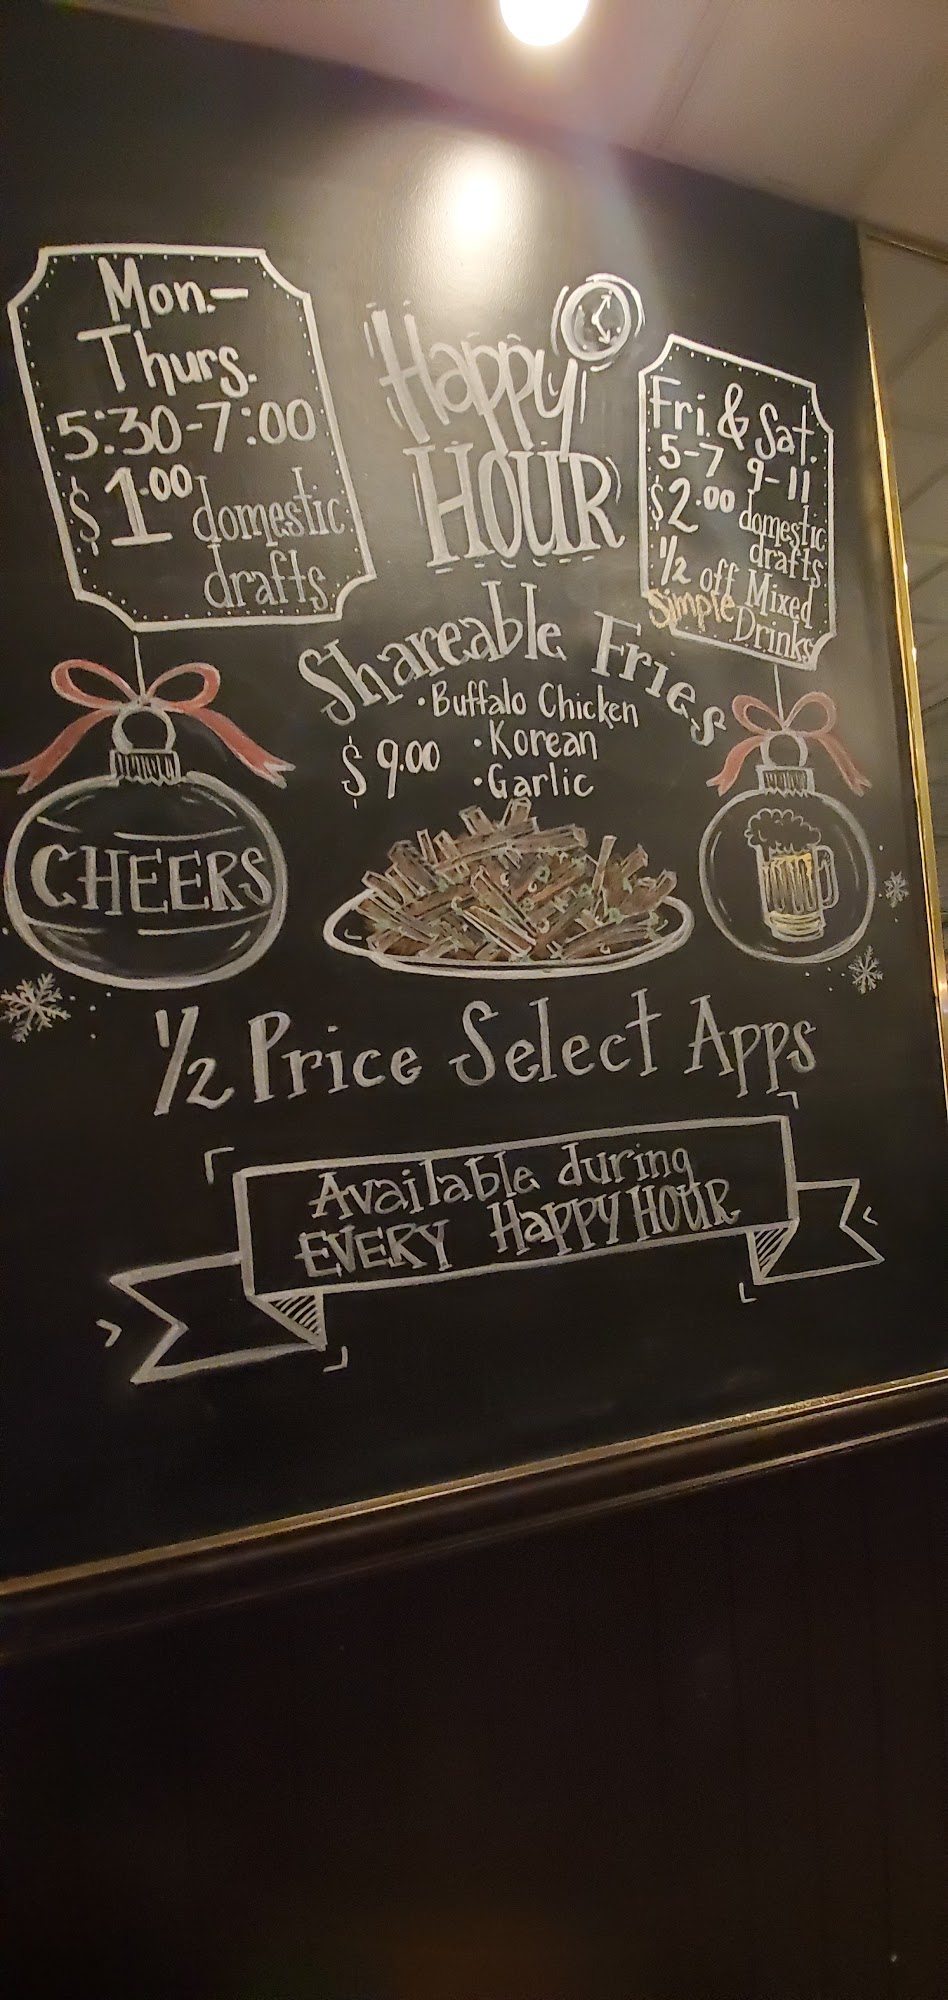 Mon.-
Thurs.
5:30-7:00
$1.00 domestic
drafts
Happy
HOUR
Fri. & Sat.
5-7 9-11
$2.00 domestic
drafts
1/2 off Mixed
Simple Drinks
Shareable Fries
• Buffalo Chicken
$9.00 • Korean
• Garlic
CHEERS
1/2 Price Select Apps
Available during
EVERY HAPPY HOUR